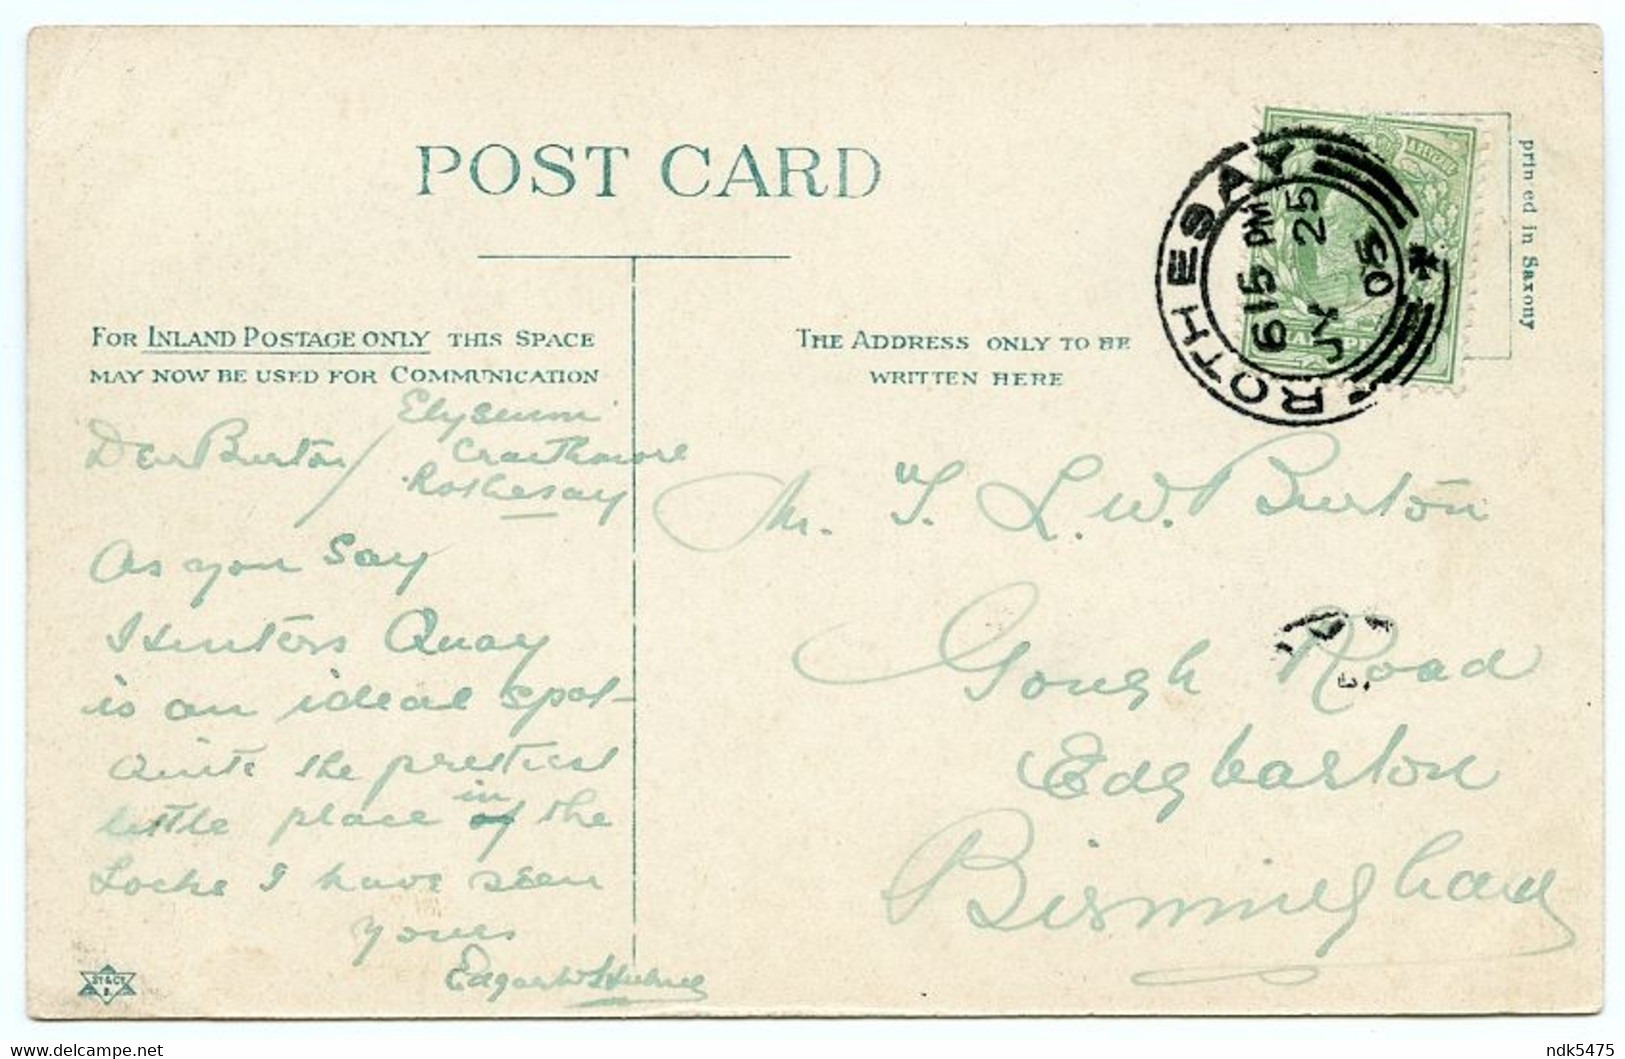 POST CARD
FOR INLAND POSTAGE ONLY THIS SPACE
MAY NOW BE USED FOR COMMUNICATION
THE ADDRESS ONLY TO BE
WRITTEN HERE
printed in Saxony
ROTHESAY
615 PM
JY 25
05
HALFPENNY
Elysium
Craethmore
Rothesay
Dear Burton
As you say
Hunters Quay
is an ideal spot
Quite the prettiest
little place in the
Lochs I have seen
yours
Edgar W
Mr. T. L. W. Burton
Gough Road
Edgbaston
Birmingham
ST & CO
D.
ndk5475